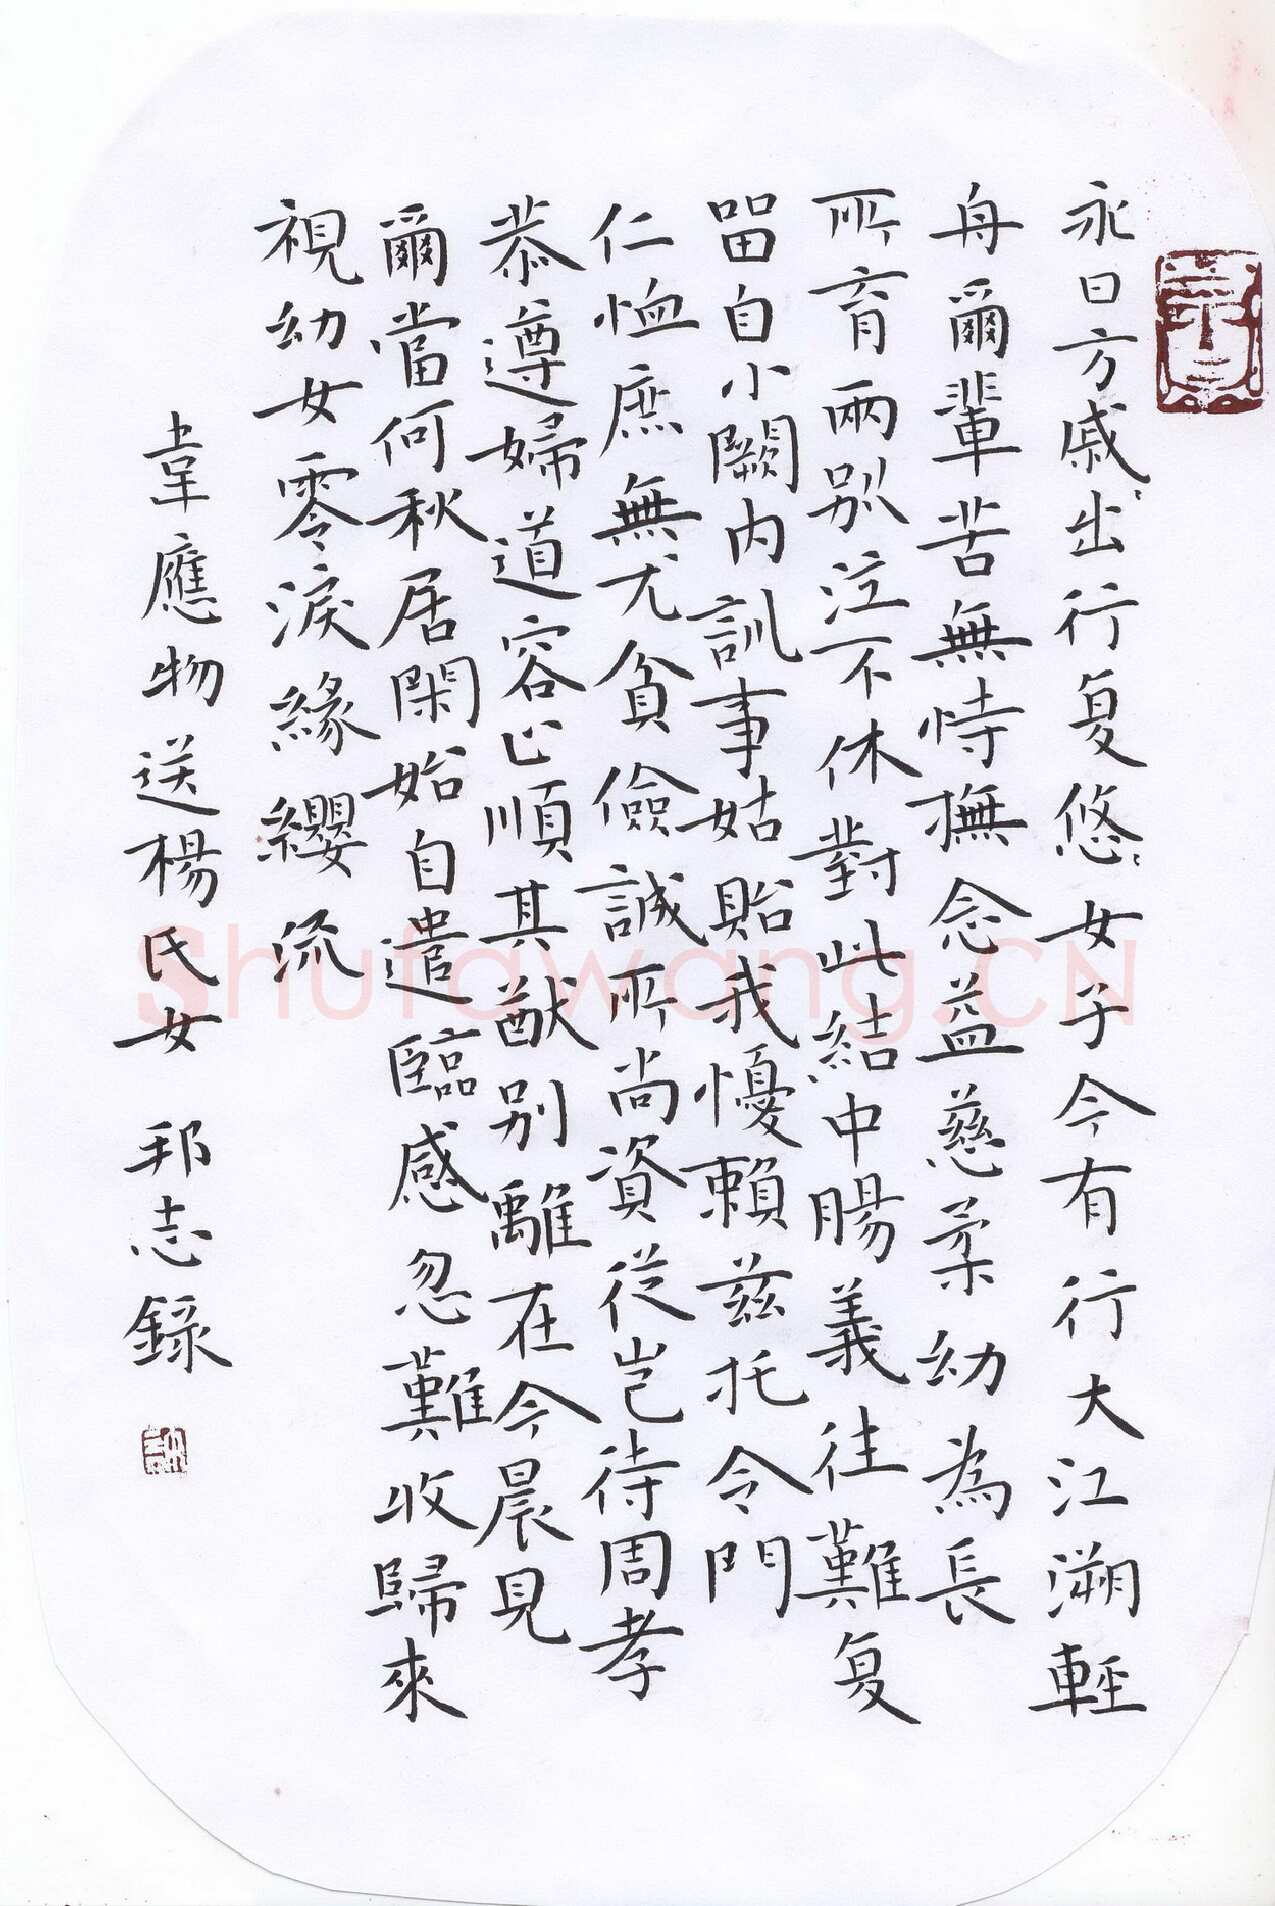 永日方戚〻出行复悠〻女子今有行大江溯輕
舟爾輩苦無恃撫念益慈柔幼為長
所育兩別泣不休對此結中腸義往難复
留自小闕内訓事姑貽我懮賴兹托令門
仁恤庶無尤貧儉誠所尚資從岂待周孝
恭遵婦道容止順其猷别離在今晨見
爾當何秋居閑始自遣臨感忽難收歸來
視幼女零淚緣纓流
韋應物送楊氏女 邦志錄
Shufawang.CN